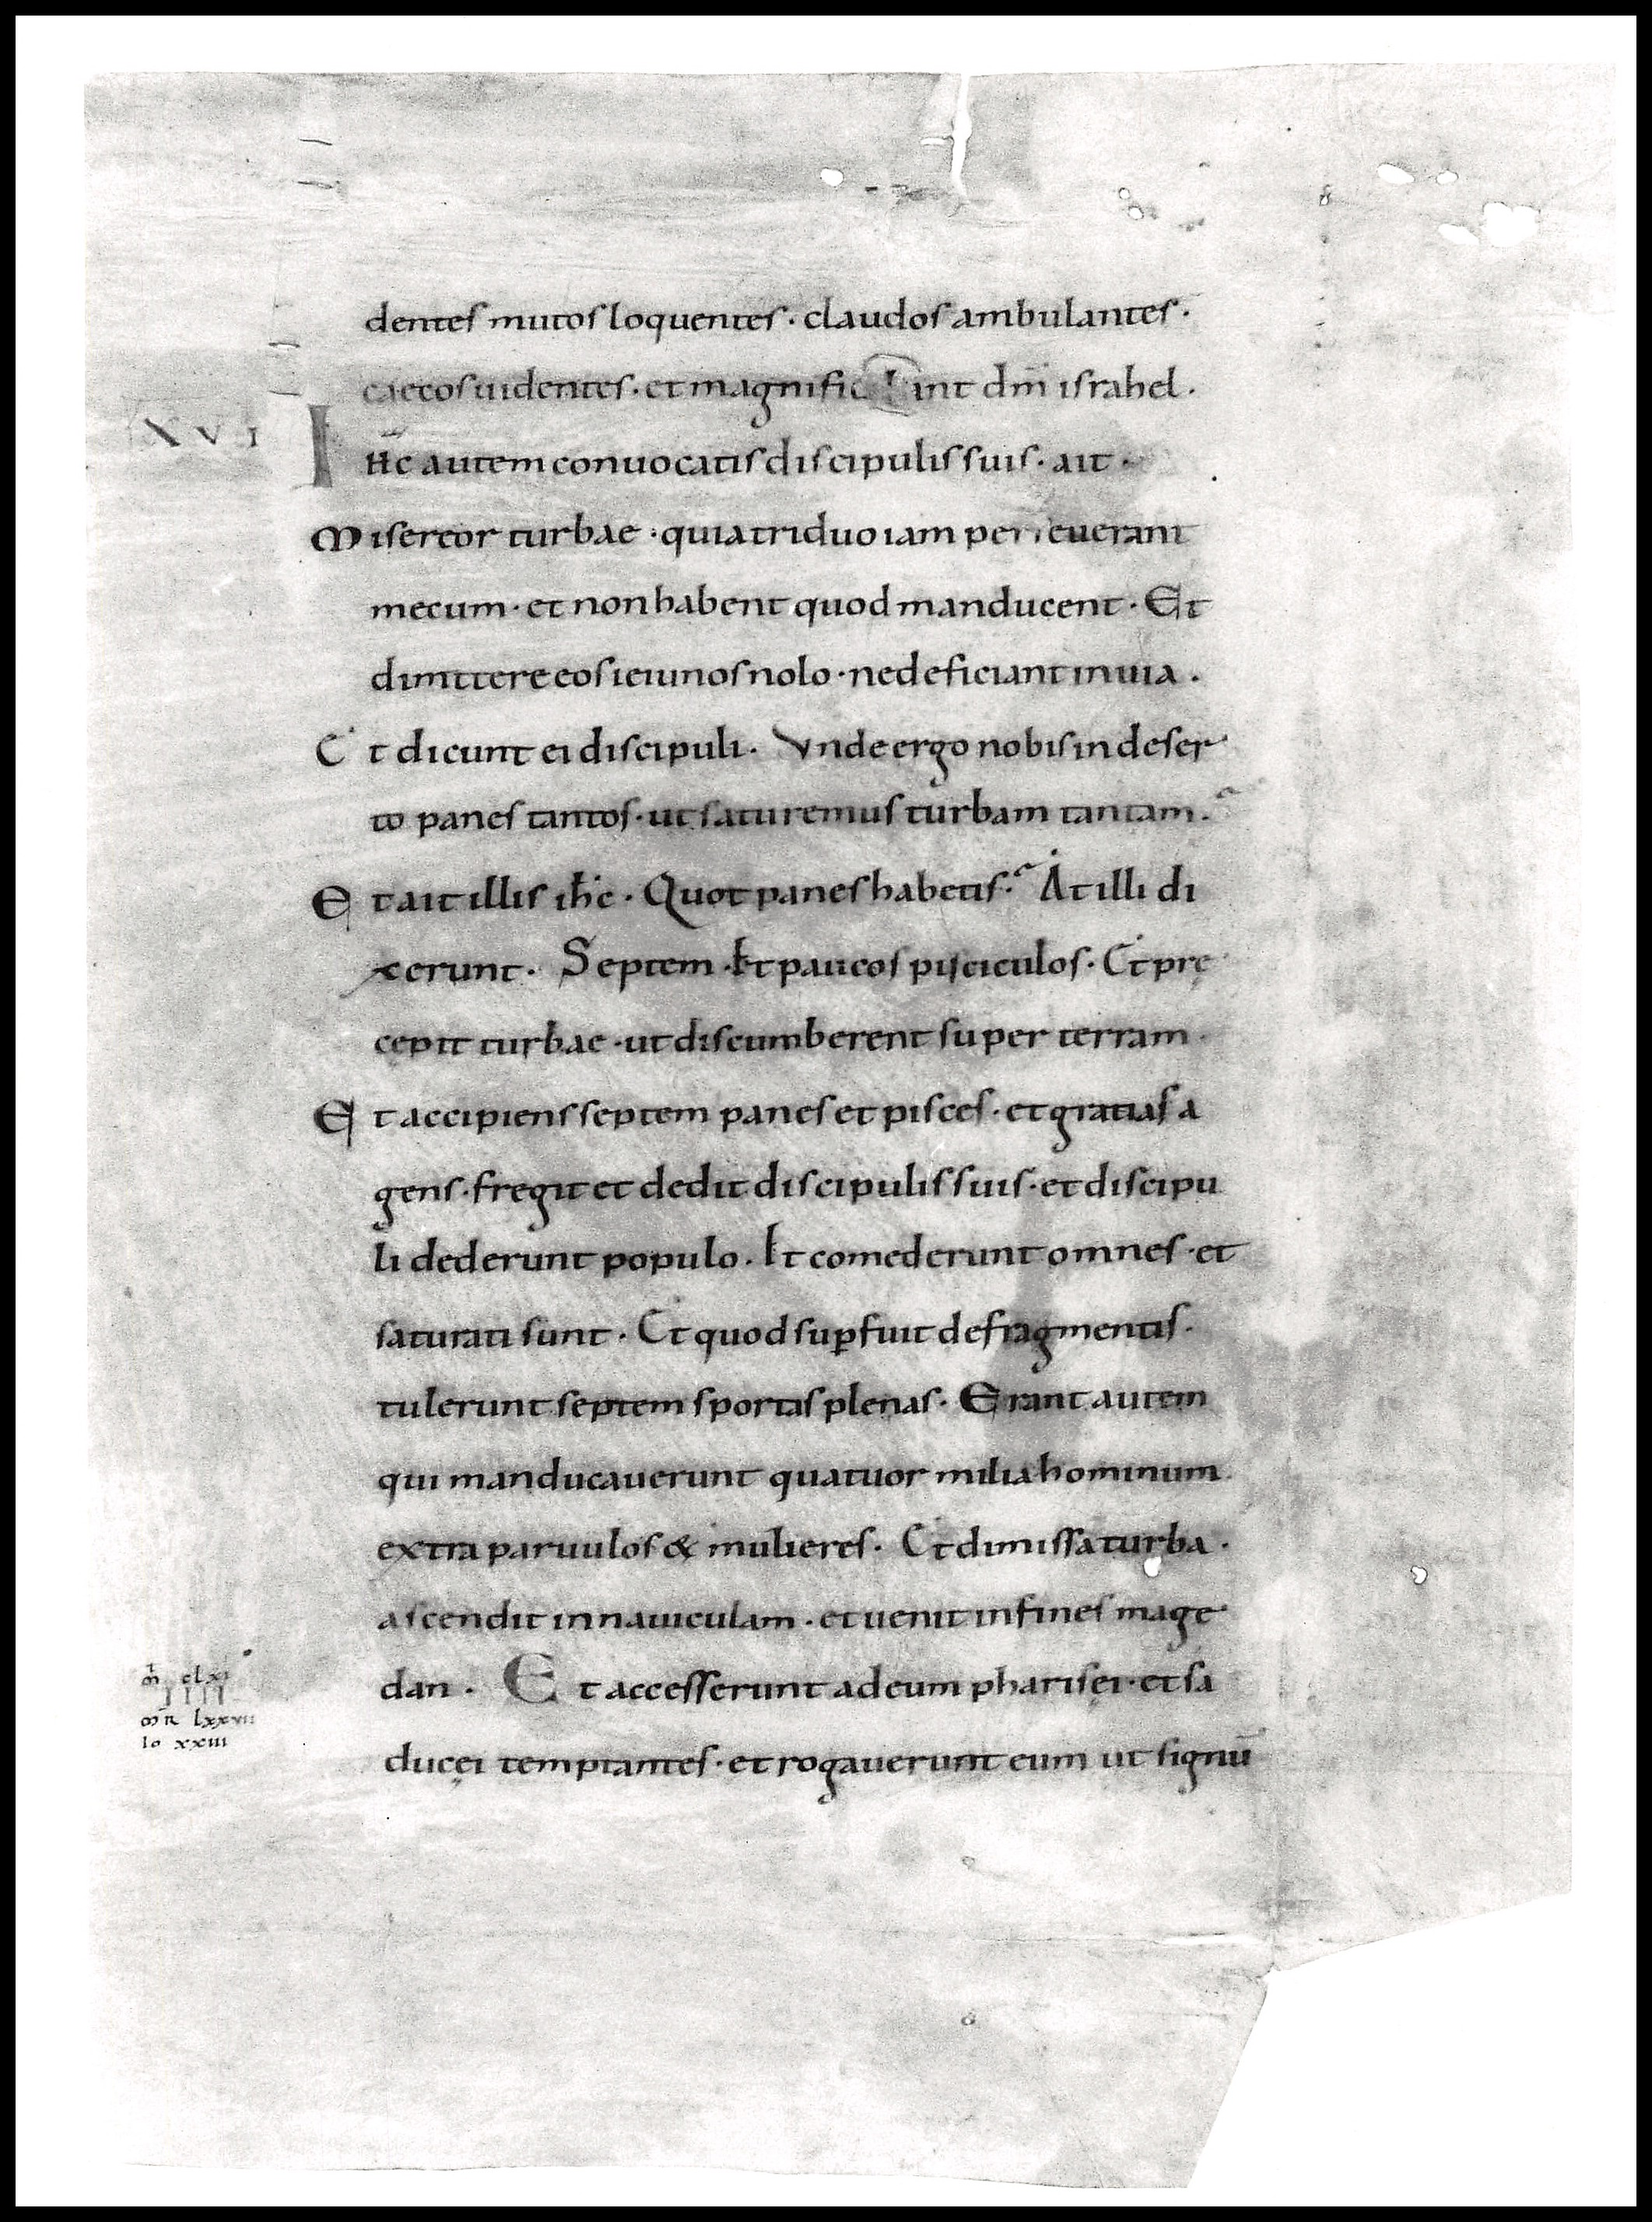 dentes mutos loquentes · claudos ambulantes ·
caecos uidentes · et magnific int dm̄ israhel ·
XVI
Ihc̄ autem conuocatis discipulis suis · ait ·
Misereor turbae · quia triduo iam perseuerant
mecum · et non habent quod manducent · Et
dimittere eos ieiunos nolo · ne deficiant in uia ·
Et dicunt ei discipuli · Vnde ergo nobis in deser
to panes tantos · ut saturemus turbam tantam ·
Et ait illis ihc̄ · Quot panes habetis · At illi di
xerunt · Septem · Et paucos pisciculos · Et pre
cepit turbae · ut discumberent super terram ·
Et accipiens septem panes et pisces · et gratias a
gens · fregit et dedit discipulis suis · et discipu
li dederunt populo · Et comederunt omnes · et
saturati sunt · Et quod suꝑfuit de fragmentis ·
tulerunt septem sportas plenas · Erant autem
qui manducauerunt quatuor milia hominum
extra paruulos & mulieres · Et dimissa turba ·
ascendit in nauiculam · et uenit in fines mage
dan · Et accesserunt ad eum pharisęi · et sa
m̄ clxi
IIII
mr̄ lxxvii
Io xxiii
ducęi temptantes · et rogauerunt eum ut signū